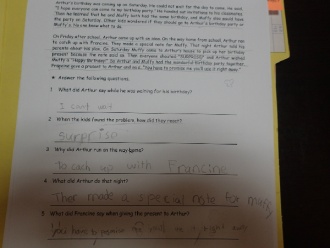 birthday was coming on on Saturday. He could not wait for the day to come. He said,
"I hope everyone can come to my birthday party." He handed out invitations to his classmates.
Then he noticed that he and Muffy both had the same birthday, and Muffy also have
the party on Saturday. Other kids wondered if they should go to Arthur's birthday party or
Muffy's. He can know what to do.
On Friday after school, Arthur came up with an idea. On the way home from school, Arthur ran
to catch up with Francine. They made a special note for Muffy. That night Arthur told his
parents about his plan. On Saturday Muffy came to Arthur's house to pick up her birthday
present because the note said so. Then everyone shouted "SURPRISE!" and Arthur wished
Muffy a "Happy Birthday!" So Arthur and Muffy had the successful birthday party together.
Francine gave a present to Arthur and said, "You have to promise me you'll use it right away."
★ Answer the following questions.
1 What did Arthur say while he was waiting for his birthday?
I cant wat
2 When the kids found the problem, how did they react?
surpriso
3 Why did Arthur run on the way home?
to cach up with Francine
4 What did Arthur do that night?
Ther made a special note for muffy
5 What did Francine say when giving the present to Arthur?
you have to promise